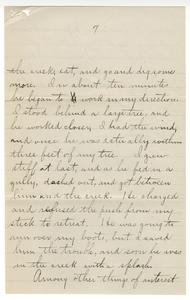 7
the creek, eat, and go and dig some
more. In about ten minutes
he began to work in my direction.
I stood behind a large tree, and
he worked closer, I had the wind,
and once he was actually within
three feet of my tree. I grew
stiff at last, and as he fed in a
gully, dashed out, and got between
him and the creek. He charged
and refused the push from my
stick to retreat. He was going to
run over my boots, but I saved
him the trouble, and soon he was
in the creek with a splash.
Among other things of interest